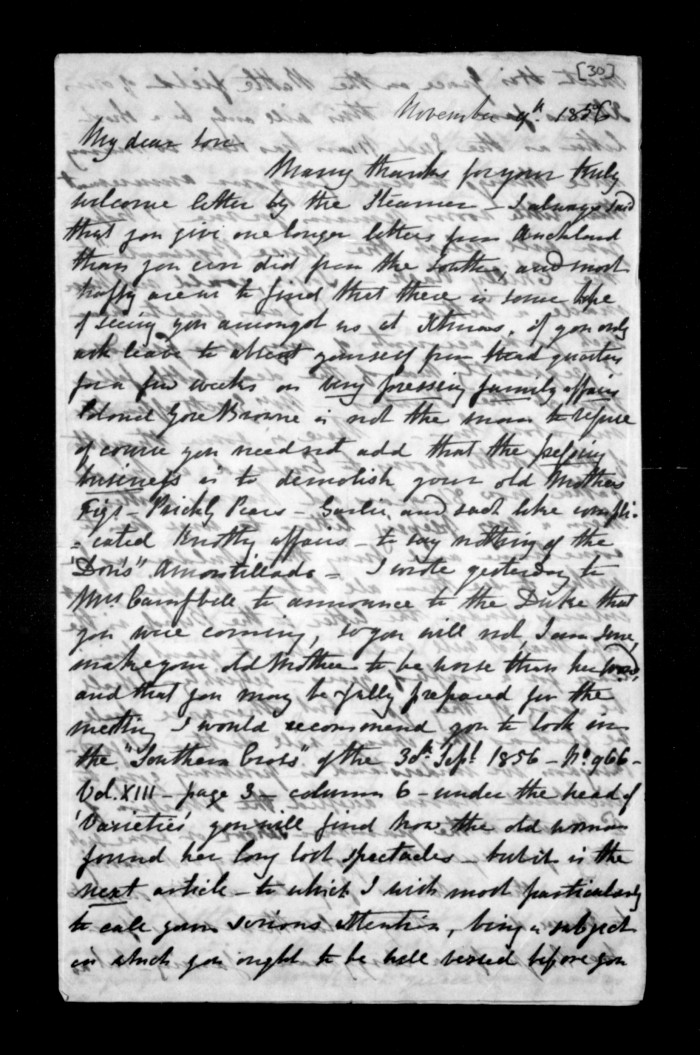 [30]
November 9th 1856
My dear Son
Many thanks for your truly
welcome letter by the Steamer - I always said
that you give one longer letters from Auckland
than you ever did from the South, and most
happy are us to find that there is some hope
of seeing you amongst us at Xtmas, if you only
ask leave to absent yourself from Head quarters
for a few weeks on very pressing family affairs
Colonel Gore Browne is not the man to refuse
of course you need not add that the pressing
business is to demolish your old Mothers
Figs - Prickly Pears - Garlic, and such like compli-
-cated affairs - to say nothing of the
"Don's" Amontillado - I wrote yesterday to
Mrs Campbell to announce to the Duke that
you were coming, so you will not, I am sure,
make your old Mother to be worse than her word,
and that you may be fully prepared for the
meeting I would recommend you to look in
the "Southern Cross" of the 30th Sept 1856 - No 966 -
Vol. XIII - page 3 - column 6 - under the head of
'Varieties' you will find how the old woman
found her long lost spectacles - but it is the
next article - to which I wish most particularly
to call your serious attention, being a subject
in which you ought to be well versed before you